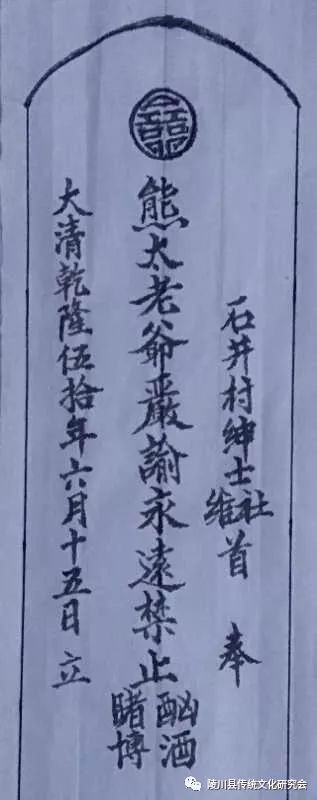 石井村绅士社维首 奉
熊太老爺嚴諭永遠禁止酗酒賭博
大清乾隆伍拾年六月十五日立
陵川县传统文化研究会